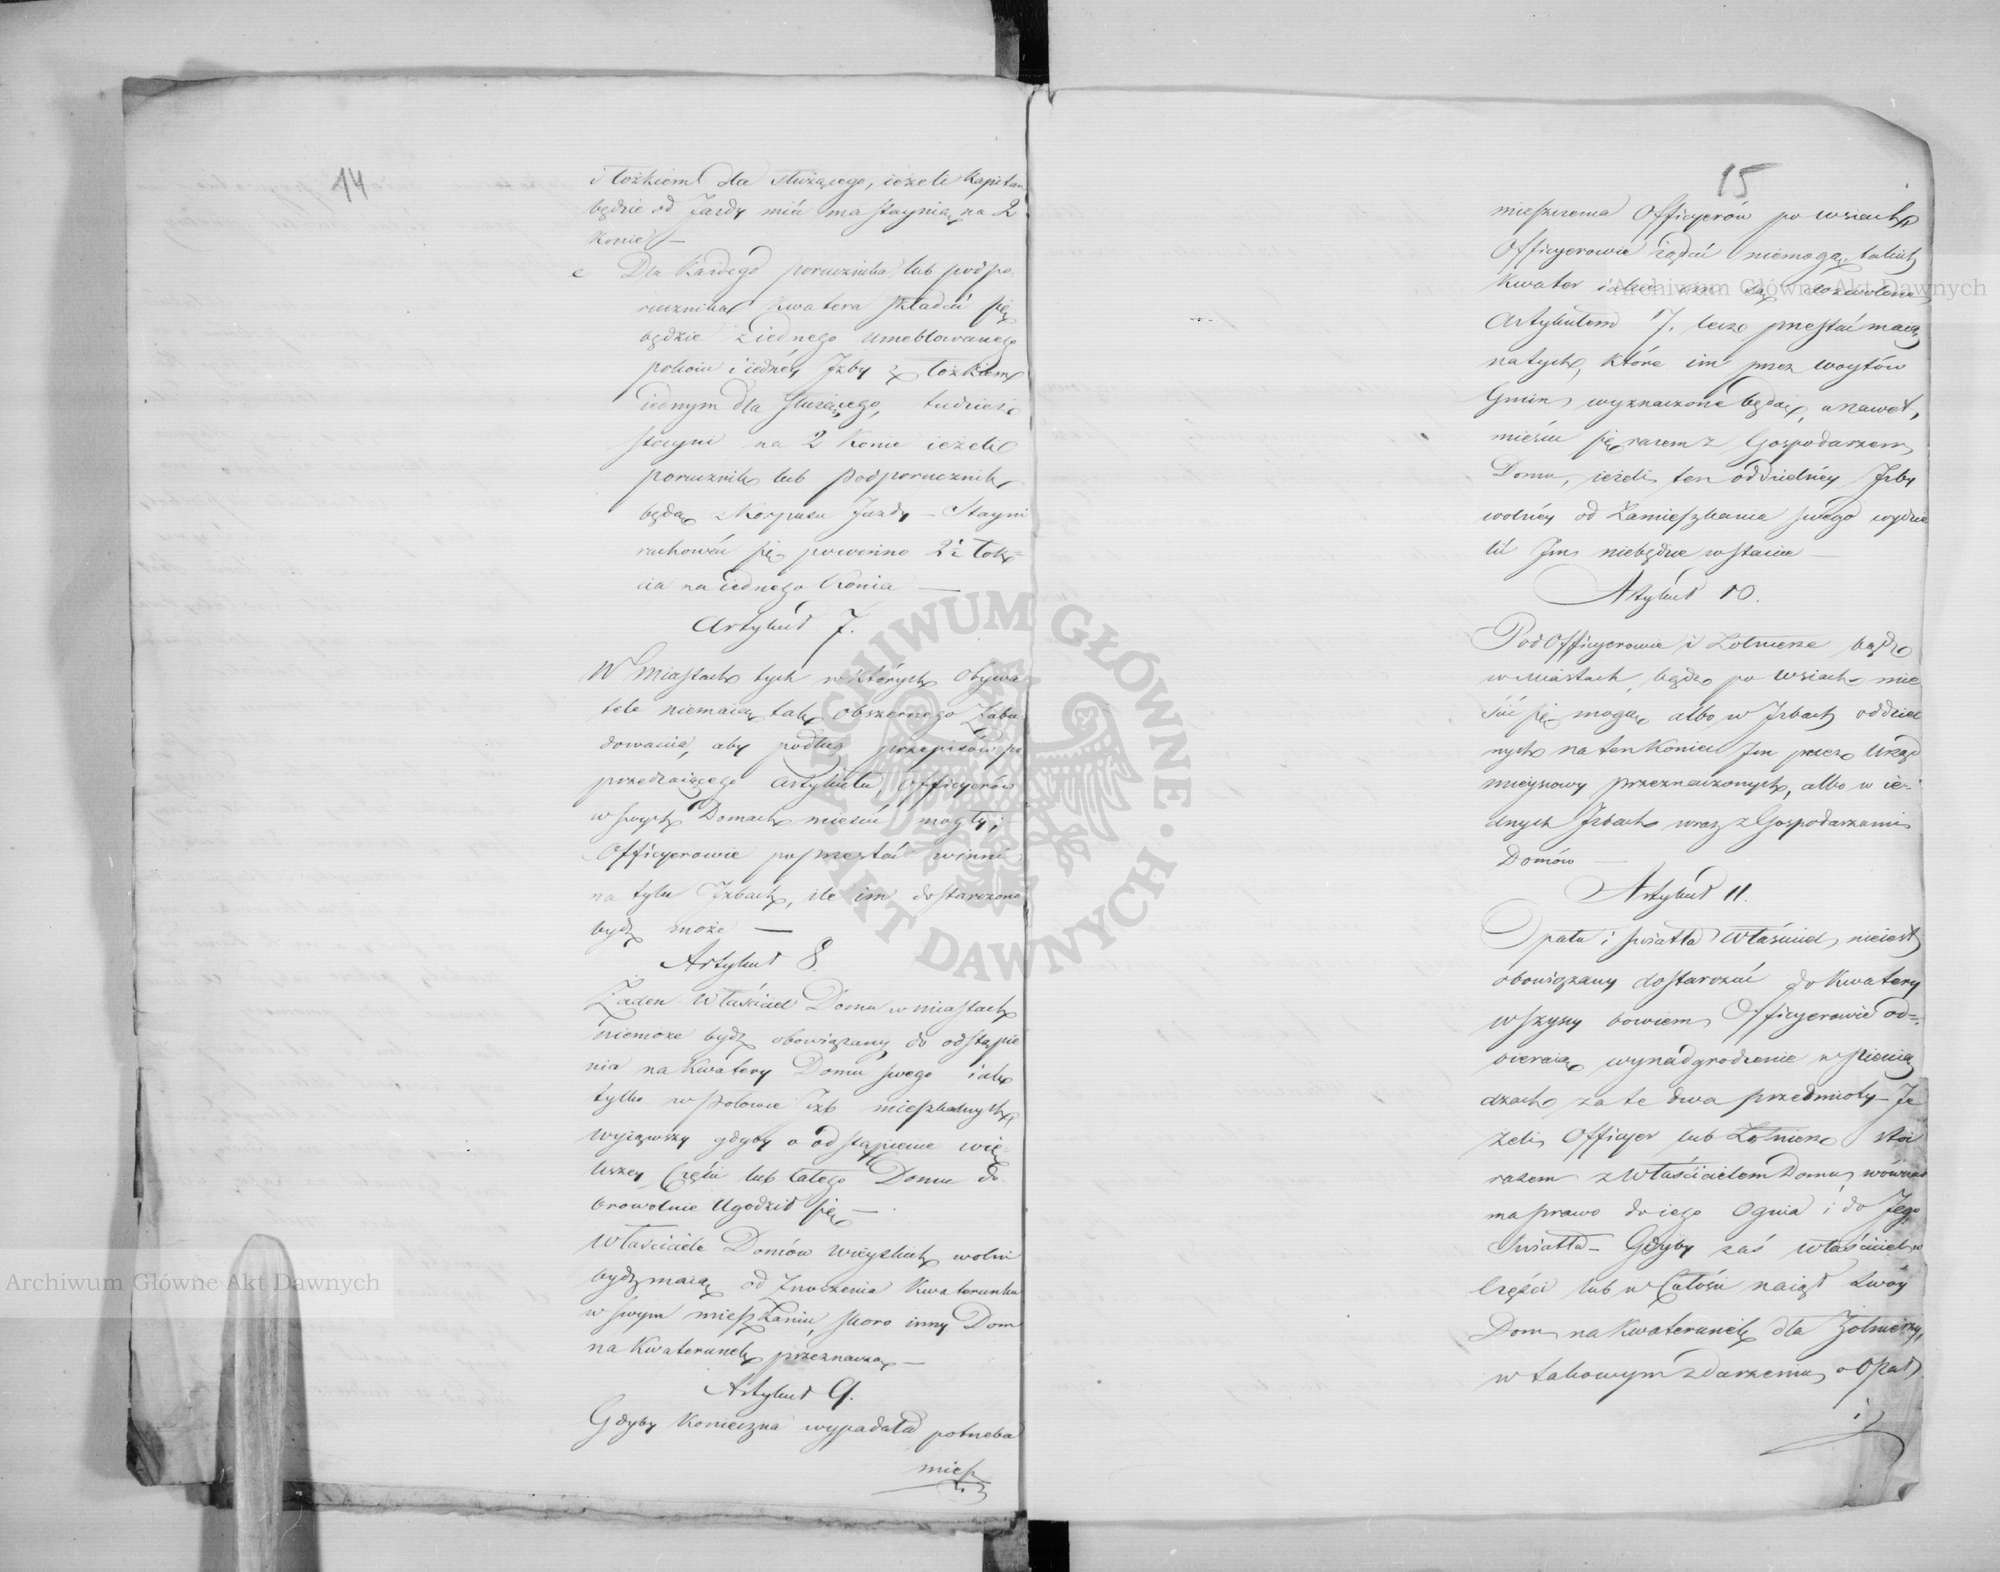 14
i łożkiem dla służącego, ieżeli Kapitan
będzie od Jazdy mieć ma staynię na 2
Konie —
c Dla Każdego porucznika lub podpo
rucznika Kwatera składać się
będzie z iednego umeblowanego
pokoiu i iednéy Izby z łożkiem
iednym dla służącego, tudzież
stayni na 2 Konie ieżeli
porucznik lub podporucznik
będą z Korpusu Jazdy — Stayni
rachować się powinno 2½ łok=
cia na iednego Konia —
Artykuł 7.
W Miastach tych w których Obywa
tele niemaią tak obszernego Zabu
dowania, aby podług przepisów po
przedzaiącego Artykułu, Officyerów
w swych Domach mieścić mogły;
Officyerowie poprzestać winni
na tylu Izbach, ile im dostarczono
bydź może —
Artykuł 8.
Żaden Właściciel Domu w miastach
niemoże bydź obowiązany do odstąpie
nia na Kwatery Domu swego iak
tylko w połowie Izb mieszkalnych,
wyiąwszy gdyby o odstąpienie wię
kszey Części lub Całego Domu do
browolnie Ugodził się —
Właściciele Domów wieyskich wolni
bydź maią od Znoszenia Kwaterunku
w swym mieszkaniu, skoro inny Dom
na Kwaterunek przeznaczą —
Artykuł 9.
Gdyby Konieczna wypadała potrzeba
miesz
15
mieszczenia Officyerów po wsiach
Officyerowie żądać niemogą takich
Kwater iakie im są dozwolone
Artykułem 7. lecz przestać maią
na tych, które im przez woytów
Gmin wyznaczone będą, a nawet,
mieścić się razem z Gospodarzem
Domu, ieżeli ten oddzielnéy Izby
wolnéy od Zamieszkania swego wydzie
lić Im niebędzie w stanie —
Artykuł 10.
PodOfficyerowie i Żołnierze bądź
w Miastach, bądź po wsiach mie
ścić się mogą albo w Izbach oddziel
nych na ten Koniec Im przez Urząd
mieyscowy przeznaczonych, albo w ie=
dnych Izbach wraz z Gospodarzami
Domów —
Artykuł 11.
Opału i światła Właściciel nieiest
obowiązany dostarczać do Kwatery
wszyscy bowiem Officyerowie od=
bieraią wynadgrodzenie w pienią
dzach za te dwa przedmioty — Je
żeli Officyer lub Żołnierz stoi
razem z Właścicielem Domu, wówczas
ma prawo do iego Ognia i do Jego
Światła — Gdyby zaś właściciel w
Części lub w Całości naiął swóy
Dom na Kwaterunek dla Żołnierzy,
w takowym zdarzeniu o Opał
i
Archiwum Główne Akt Dawnych
Archiwum Główne Akt Dawnych
ARCHIWUM GŁÓWNE · AKT DAWNYCH ·